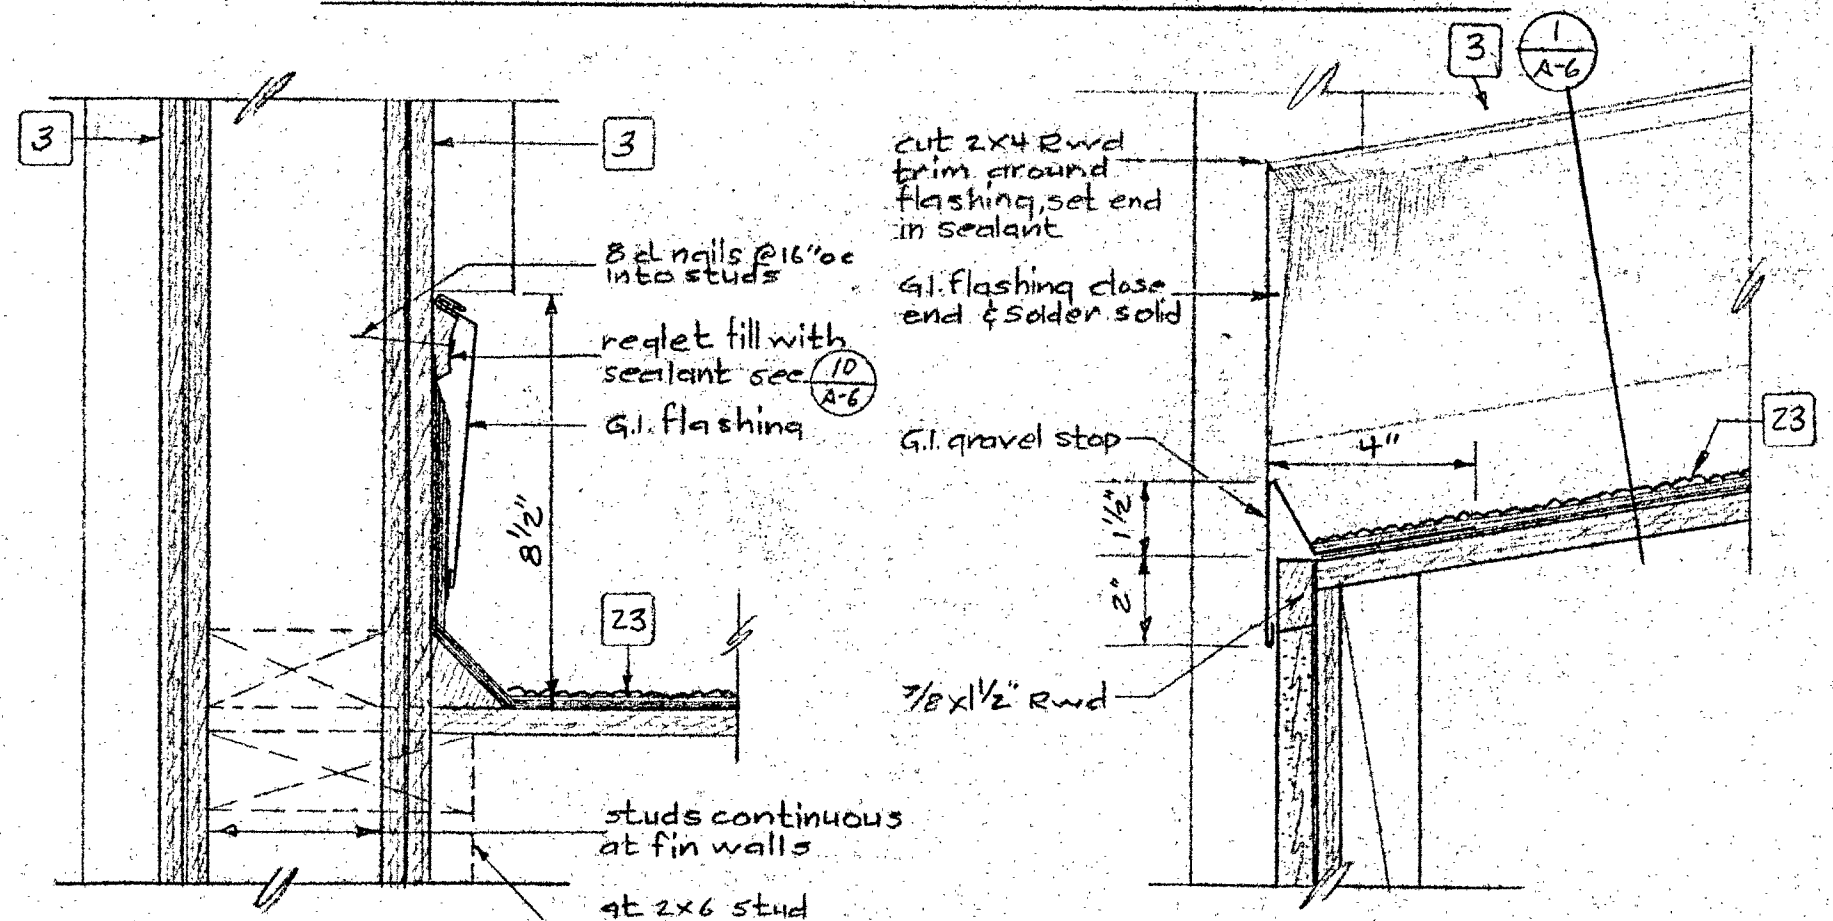 3
3
8d nails @16"oc
into studs
reglet fill with
sealant see 10
A-6
G.I. flashing
8 1/2"
23
studs continuous
at fin walls
at 2x6 stud
3
1
A-6
cut 2x4 Rwd
trim around
flashing, set end
in sealant
G.I. flashing close
end & Solder solid
G.I. gravel stop
4"
23
1 1/2"
2"
7/8 x 1 1/2" Rwd